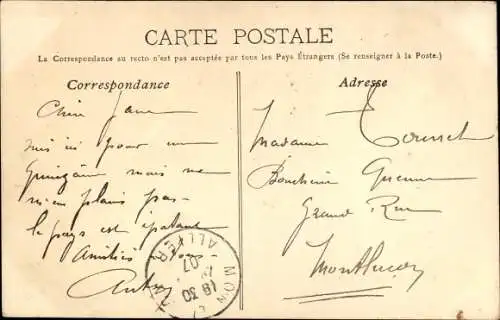 CARTE POSTALE
La Correspondance au recto n'est pas acceptée par tous les Pays Étrangers (Se renseigner à la Poste.)
Correspondance
Chère
suis ici pour une
quinzaine mais ne
m'en plains pas
le pays est épatant
Amitiés
Adresse
Madame
Boucherie
Grand Rue
Montluçon
ALLIER
07
18 30
MON